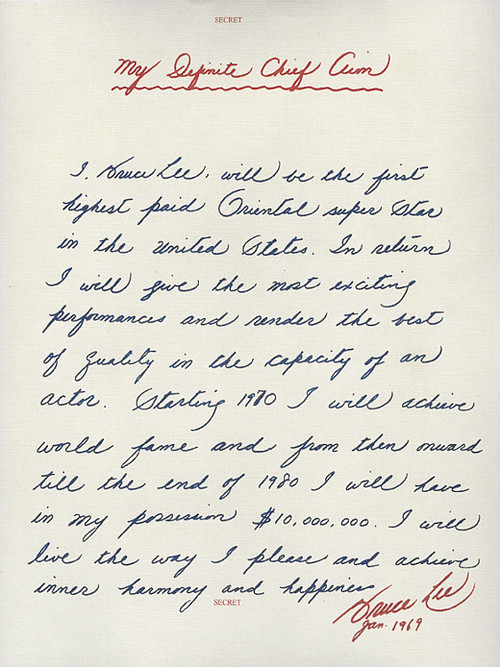 SECRET
My Definite Chief Aim
I, Bruce Lee, will be the first
highest paid Oriental super Star
in the united States. In return
I will give the most exciting
performances and render the best
of quality in the capacity of an
actor. Starting 1970 I will achieve
world fame and from then onward
till the end of 1980 I will have
in my possession $10,000,000. I will
live the way I please and achieve
inner harmony and happiness
SECRET
Bruce Lee
Jan. 1969